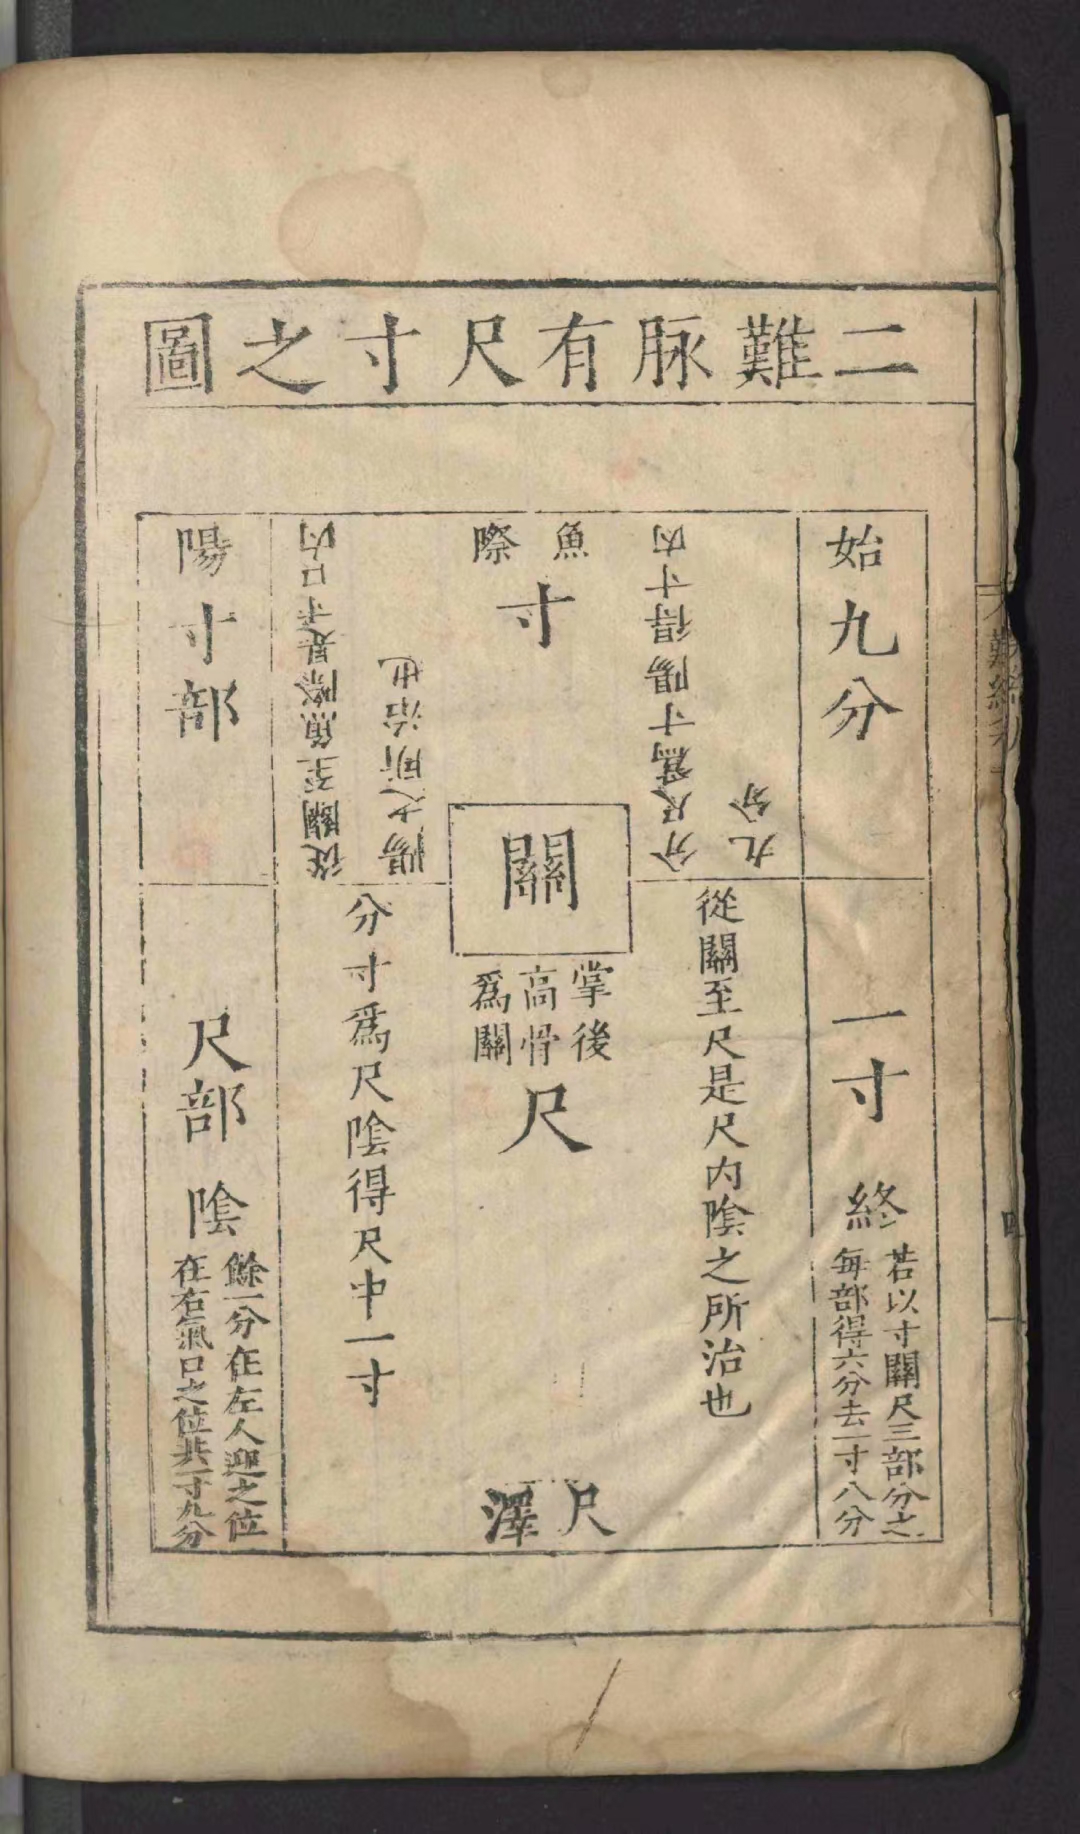 二難脉有尺寸之圖
始九分
一寸終
若以寸關尺三部分之
每部得六分去一寸八分
分尺爲寸陽得寸内
九分
從關至尺是尺内陰之所治也
魚際
寸
關
掌後
高骨
爲關
尺
尺澤
從關至魚際是寸口内
陽之所治也
分寸爲尺陰得尺中一寸
陽寸部
尺部陰
餘一分在左人迎之位
在右氣口之位共一寸九分